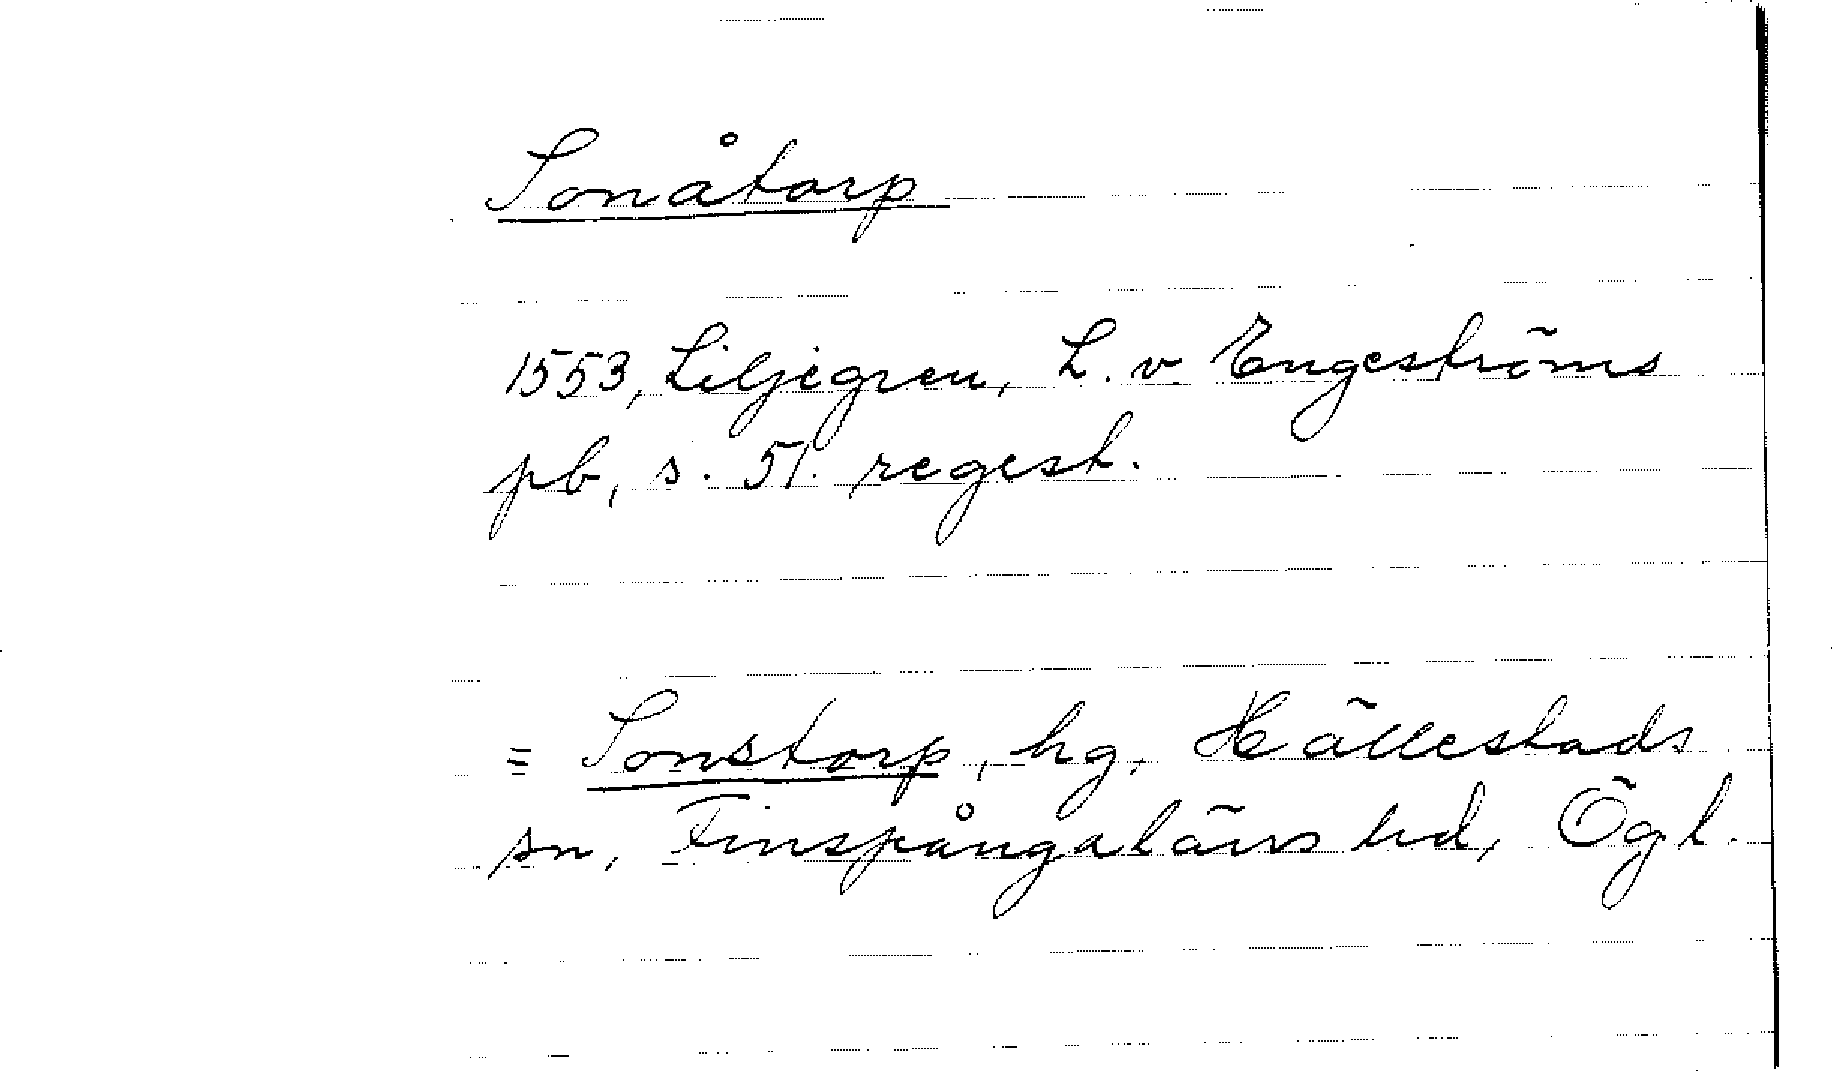 Sonåtorp
1553, Liljegren, L. v. Engeströms
pb, s. 51. regest.
= Sonstorp, hg, Hällestads
sn, Finspångaläns hd, Ögl.